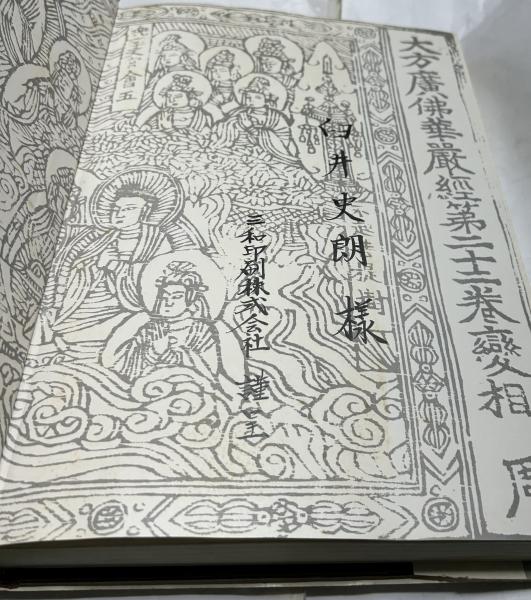 大方廣佛華嚴經第二十二卷變相 周
臼井史朗 様
三和印刷株式会社 謹呈